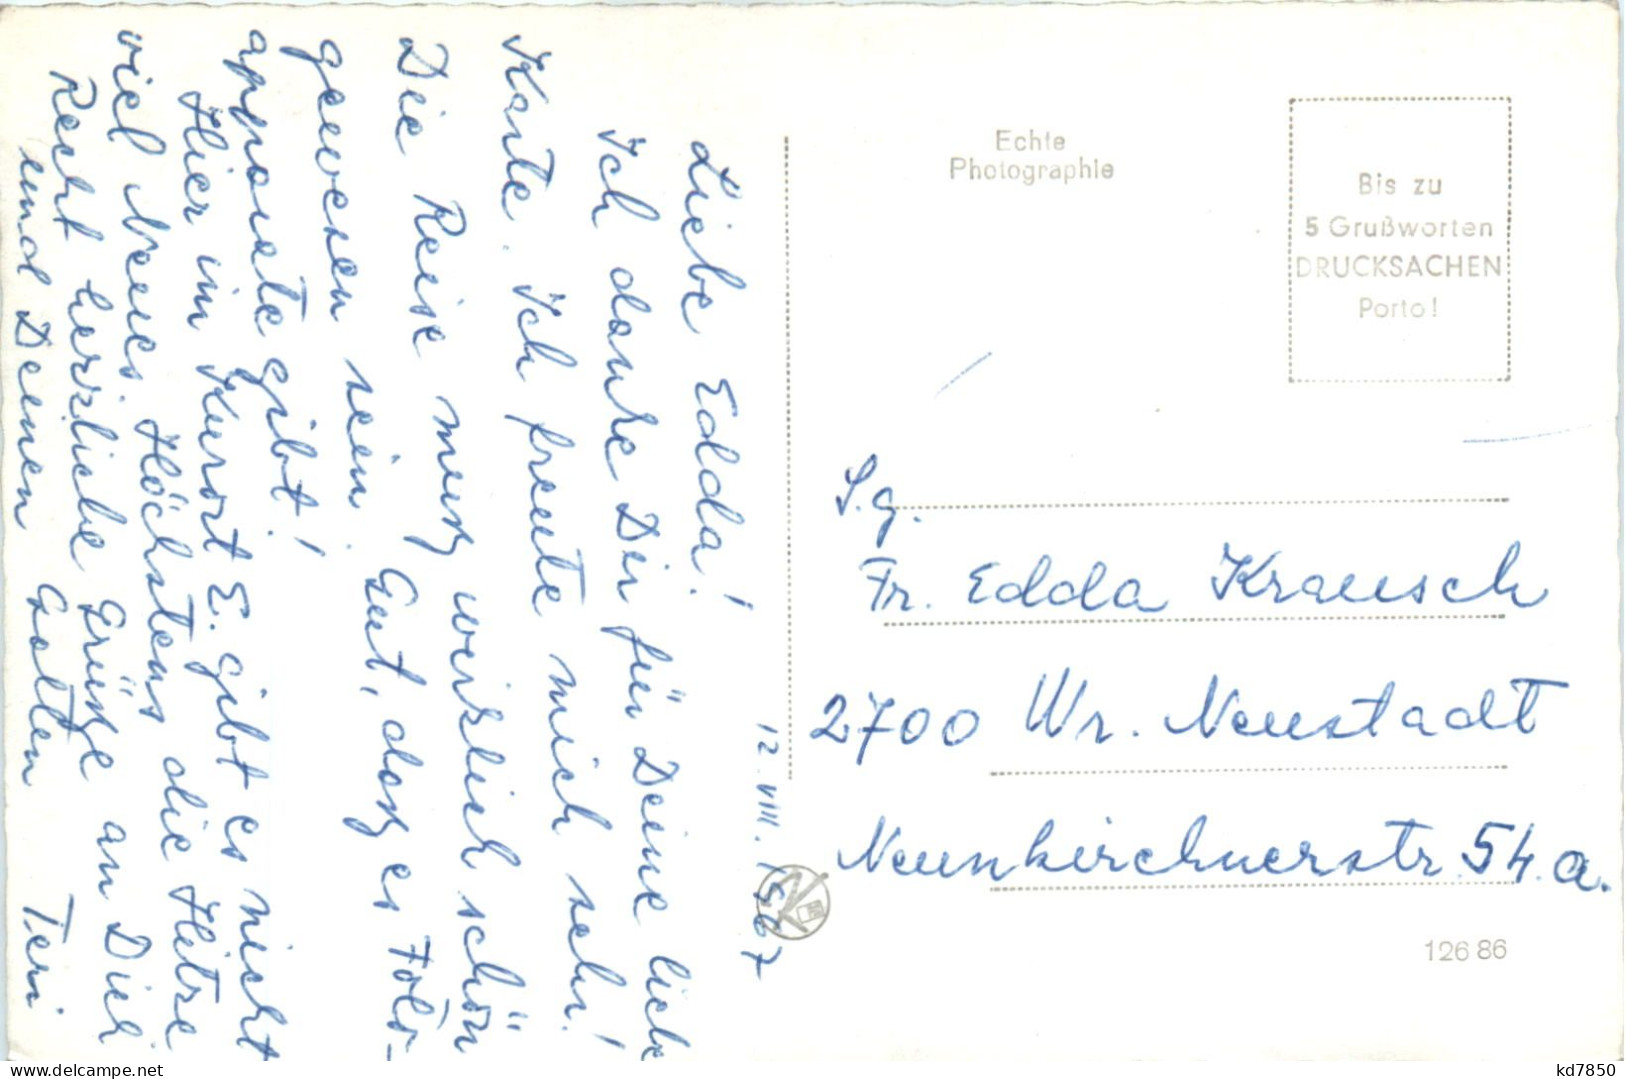 12. VIII. 1967
Liebe Edda!
Ich danke Dir für Deine liebe
Karte. Ich freute mich sehr!
Die Reise muß wirklich schön
gewesen sein. Gut, daß es Foto-
apparate gibt!
Hier im Kurort E. gibt es nicht
viel Neues. Höchstens die Hitze
Recht herzliche Grüße an Dich
und Deinen Gatten Teri
Echte
Photographie
Bis zu
5 Grußworten
DRUCKSACHEN
Porto!
S.g.
Fr. Edda Krausch
2700 Wr. Neustadt
Neunkirchnerstr. 54.a.
126 86
delcampe.net
kd7850